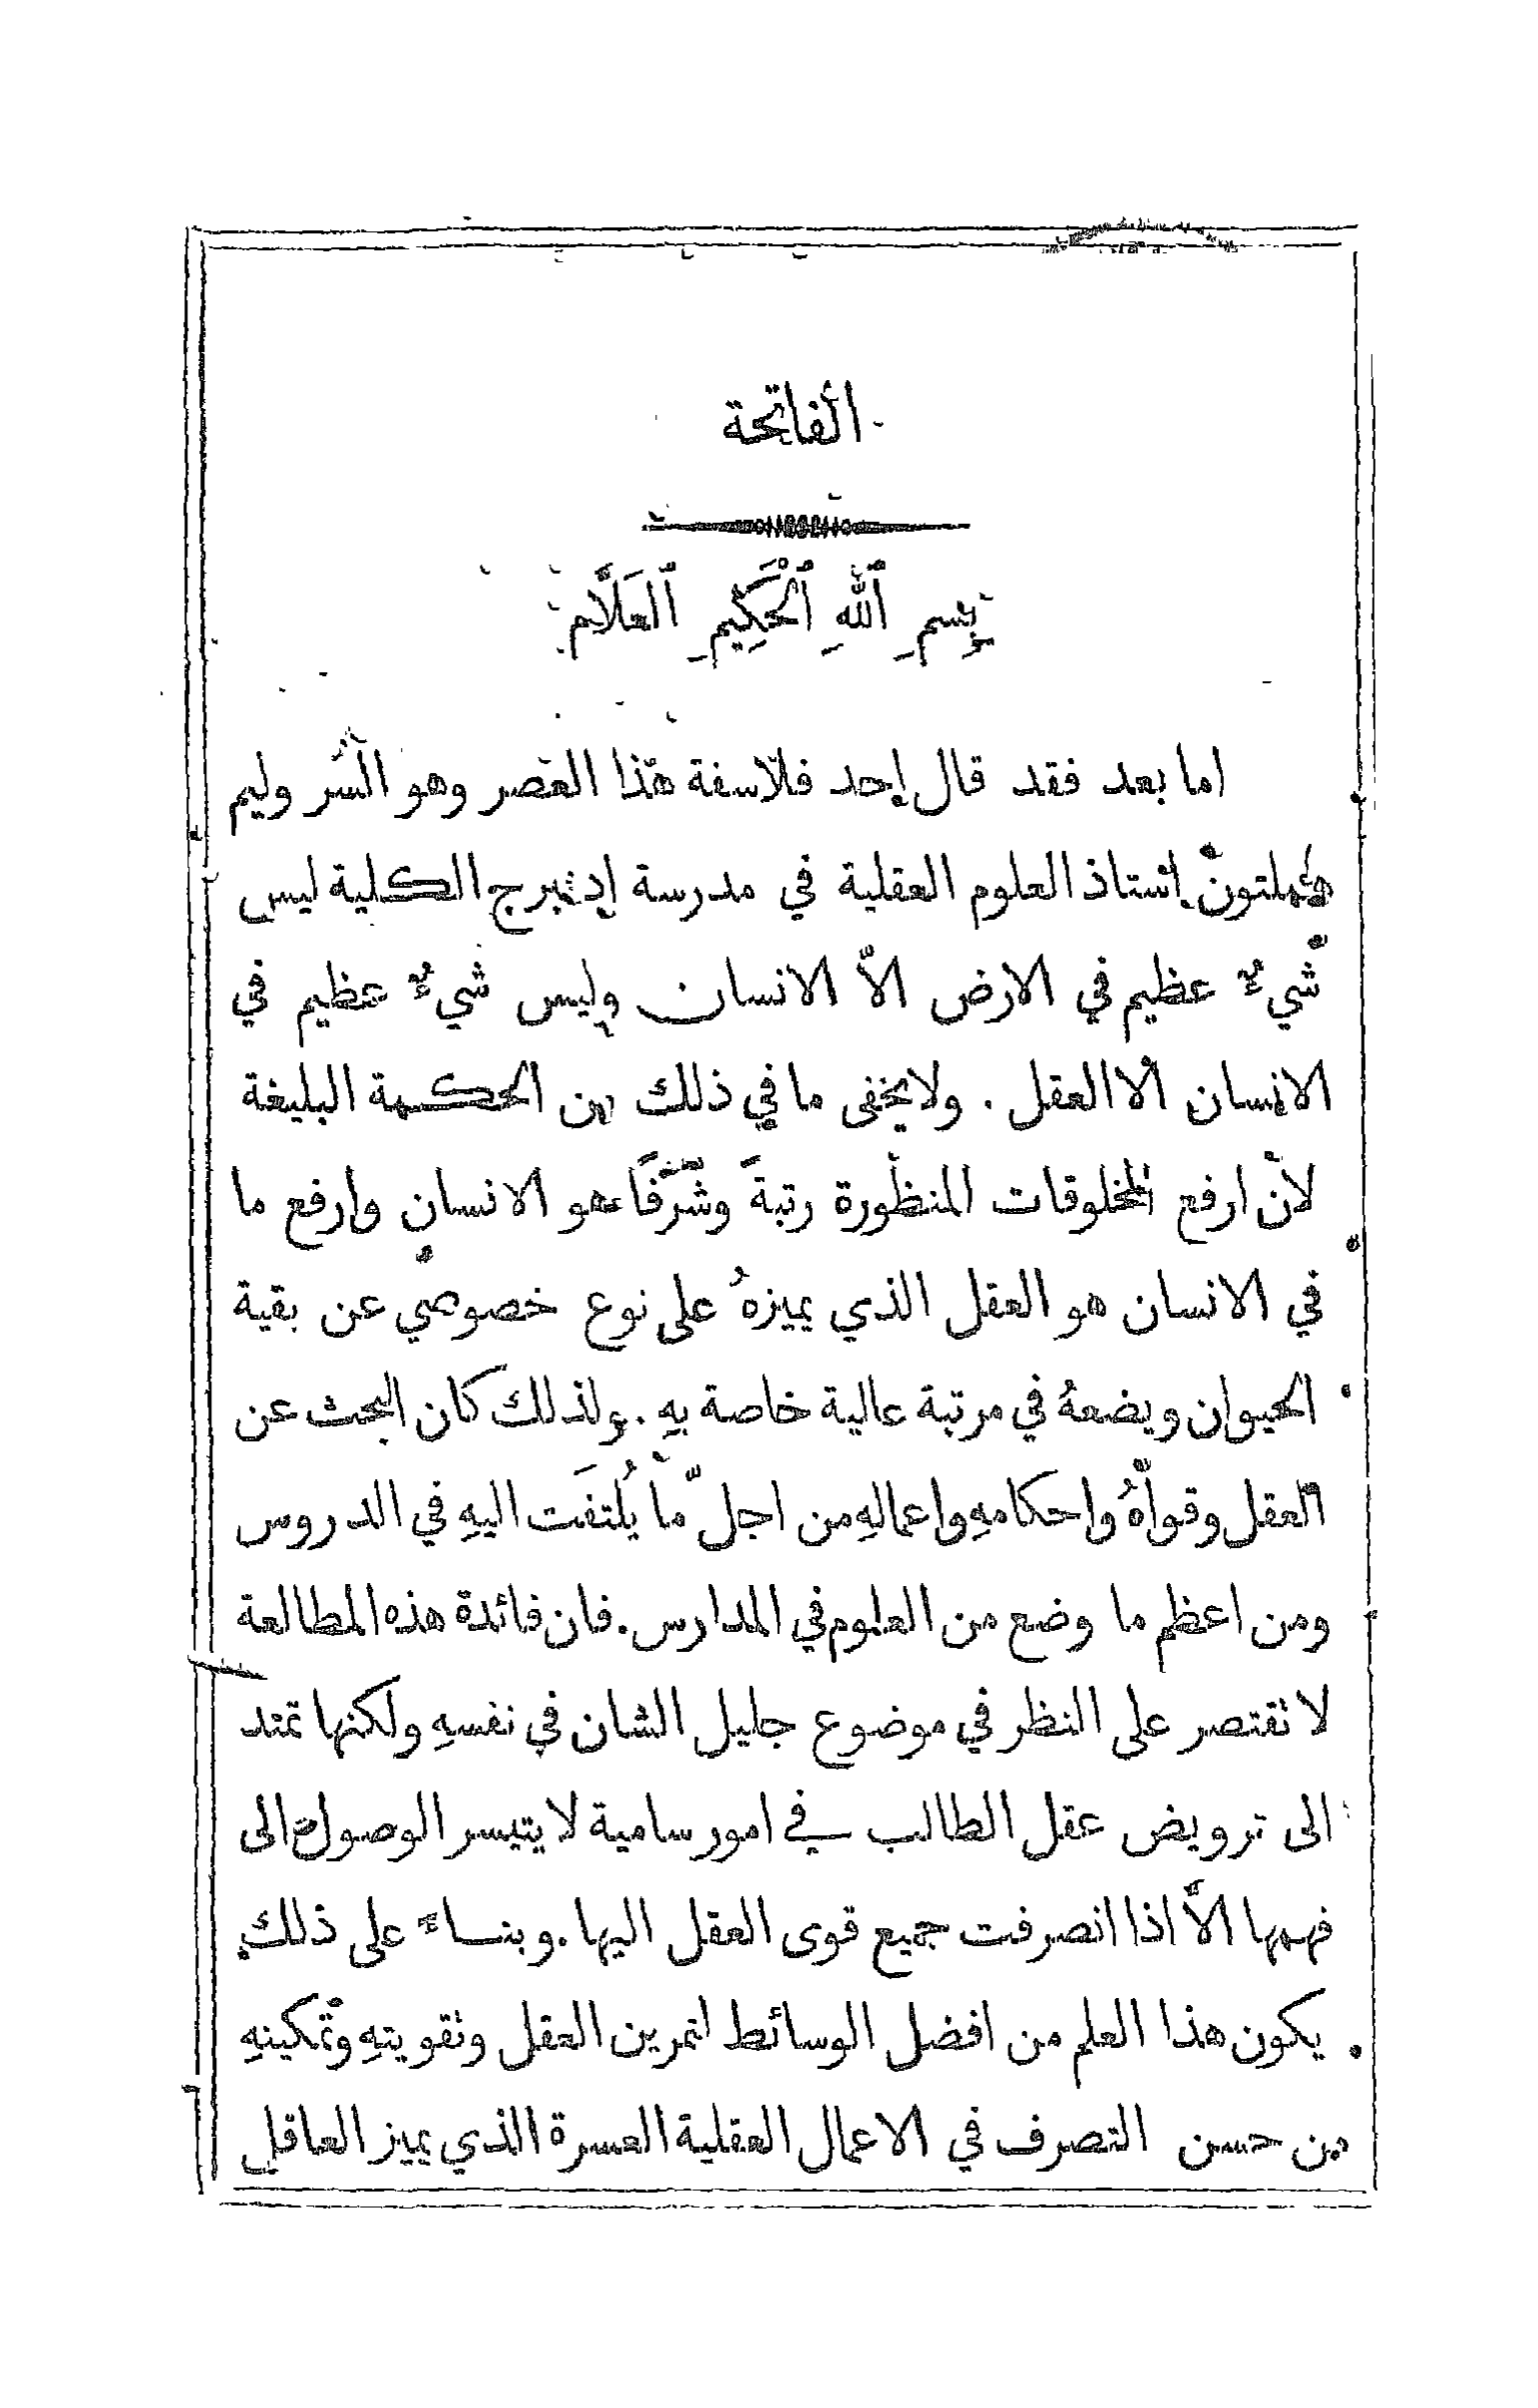 الفاتحة
بِسمِ ٱللهِ ٱلْحَكِيمِ ٱلعَلَّامِ
اما بعد فقد قال احد فلاسفة هذا العصر وهو السر وليم
هملتون استاذ العلوم العقلية في مدرسة ادنبرج الكلية ليس
شيءٌ عظيم في الارض الاَّ الانسان وليس شيءٌ عظيم في
الانسان الا العقل . ولا يخفى ما في ذلك من الحكمة البليغة
لانَّ ارفع المخلوقات المنظورة رتبةً وشرفًا هو الانسان وارفع ما
في الانسان هو العقل الذي يميزهُ على نوع خصوصي عن بقية
الحيوان ويضعهُ في مرتبة عالية خاصة بهِ . ولذلك كان البحث عن
العقل وقواهُ واحكامهِ واعمالهِ من اجلّ ما يُلتفَت اليهِ في الدروس
ومن اعظم ما وضع من العلوم في المدارس . فان فائدة هذه المطالعة
لا تقتصر على النظر في موضوع جليل الشان في نفسهِ ولكنها تمتد
الى ترويض عقل الطالب في امور سامية لا يتيسر الوصول الى
فهمها الاَّ اذا انصرفت جميع قوى العقل اليها . وبناءً على ذلك
يكون هذا العلم من افضل الوسائط لتمرين العقل وتقويتهِ وتمكينهِ
من حسن التصرف في الاعمال العقلية العسرة الذي يميز العاقل